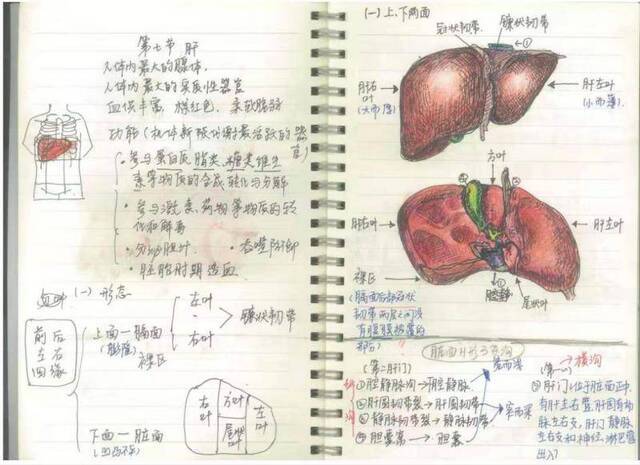 第七节 肝
人体内最大的腺体.
人体内最大的实质性器官
血供丰富 棕红色. 柔软脂弱
功能(机体新陈代谢最活跃的器官)
·参与蛋白质 脂类 糖类 维生
素等物质的合成、转化与分解
·参与激素、药物等物质的转
化和解毒
·分泌胆汁. ·吞噬防御
·胚胎时期造血.
(一)形态
前后
左右
四缘
上面—膈面
(膨隆)
左叶
右叶
镰状韧带
裸区
下面—脏面
(凹凸不平)
右叶
方叶
尾状叶
左叶
(一)上、下两面
冠状韧带
镰状韧带
①
肝右叶
(大而厚)
肝左叶
(小而薄)
方叶
肝右叶
肝左叶
裸区
腔静脉
尾状叶
(膈面后部冠状
韧带两层之间没
有腹膜被覆的
部分)
脏面H形三条沟
(第二肝门)
①腔静脉沟→腔静脉
②肝圆韧带裂→肝圆韧带
③静脉韧带裂→静脉韧带
④胆囊窝→胆囊
宽而浅
窄而深
(第一)
横沟
肝门:位于脏面正中
有肝左右管,肝固有动
脉左右支,肝门静脉
左右支和神经、淋巴管
出入